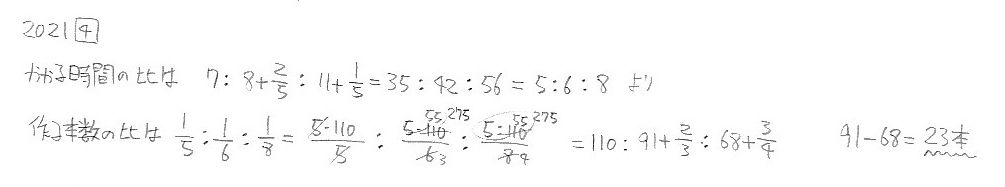 2021 4
かかる時間の比は 7:8+2/5:11+1/5=35:42:56=5:6:8 より
作る本数の比は 1/5:1/6:1/8=5・110/5:5・110/6 55 275 3:5・110/8 55 275 4=110:91+2/3:68+3/4 91-68=23本